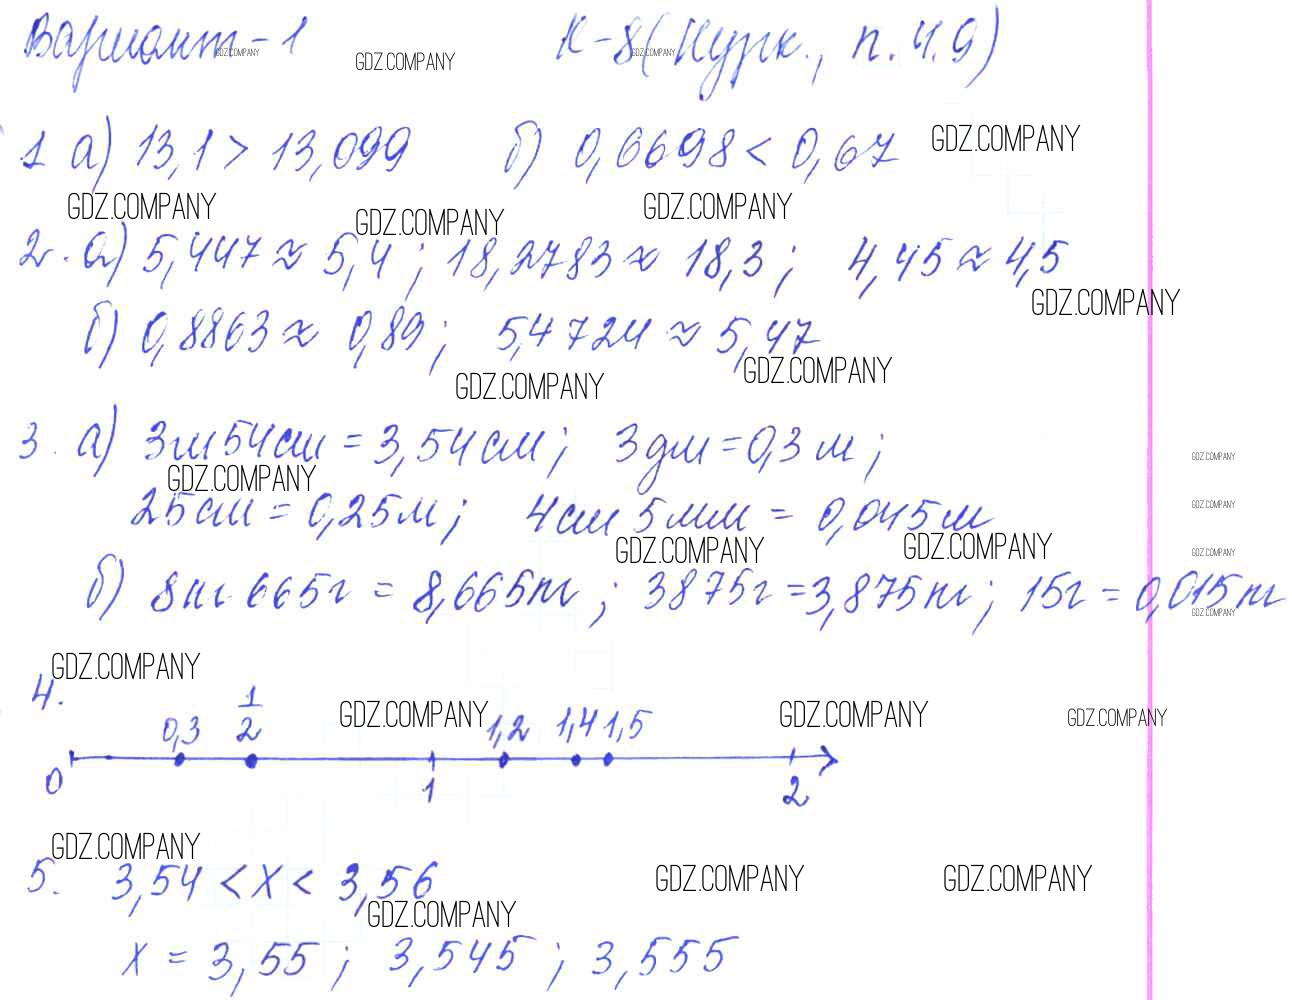 Вариант-1 К-8 (Нурк., п. 4.9)
GDZ.COMPANY GDZ.COMPANY GDZ.COMPANY
1 а) 13,1 > 13,099 б) 0,6698 < 0,67
GDZ.COMPANY
GDZ.COMPANY GDZ.COMPANY GDZ.COMPANY
2. а) 5,447 ≈ 5,4 ; 18,2783 ≈ 18,3 ; 4,45 ≈ 4,5
GDZ.COMPANY
б) 0,8863 ≈ 0,89 ; 5,4724 ≈ 5,47
GDZ.COMPANY GDZ.COMPANY
3. а) 3м 54см = 3,54см ; 3дм = 0,3м ;
GDZ.COMPANY GDZ.COMPANY
25см = 0,25м ; 4см 5мм = 0,045м
GDZ.COMPANY
GDZ.COMPANY GDZ.COMPANY GDZ.COMPANY
б) 8кг 665г = 8,665кг ; 3875г = 3,875кг ; 15г = 0,015кг
GDZ.COMPANY
GDZ.COMPANY
4.
GDZ.COMPANY GDZ.COMPANY GDZ.COMPANY
0,3 1/2 1,2 1,4 1,5
0 1 2
GDZ.COMPANY
5. 3,54 < x < 3,56
GDZ.COMPANY GDZ.COMPANY
GDZ.COMPANY
x = 3,55 ; 3,545 ; 3,555